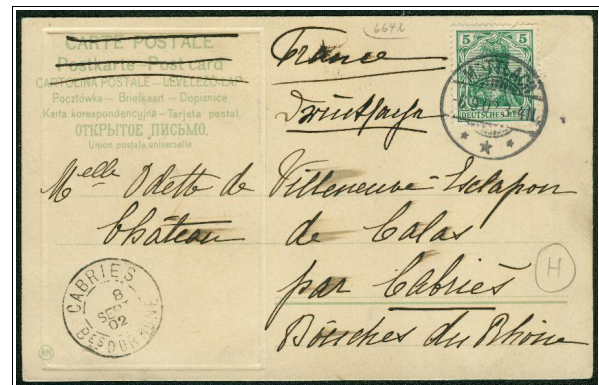 CARTE POSTALE
Postkarte - Post card
CARTOLINA POSTALE – LEVELEZŐ-LAP
Pocztówka – Briefkaart – Dopisnice
Karta korespondencyjna – Tarjeta postal.
ОТКРЫТОЕ ПИСЬМО.
Union postale universelle
6642
France
Drucksache
5 5
DEUTSCHES REICH
Melle Odette de Villeneuve-Esclapon
Château de Calas
par Cabriès
Bouches du Rhône
H
CABRIES
8
SEPT
02
BES DU RHONE